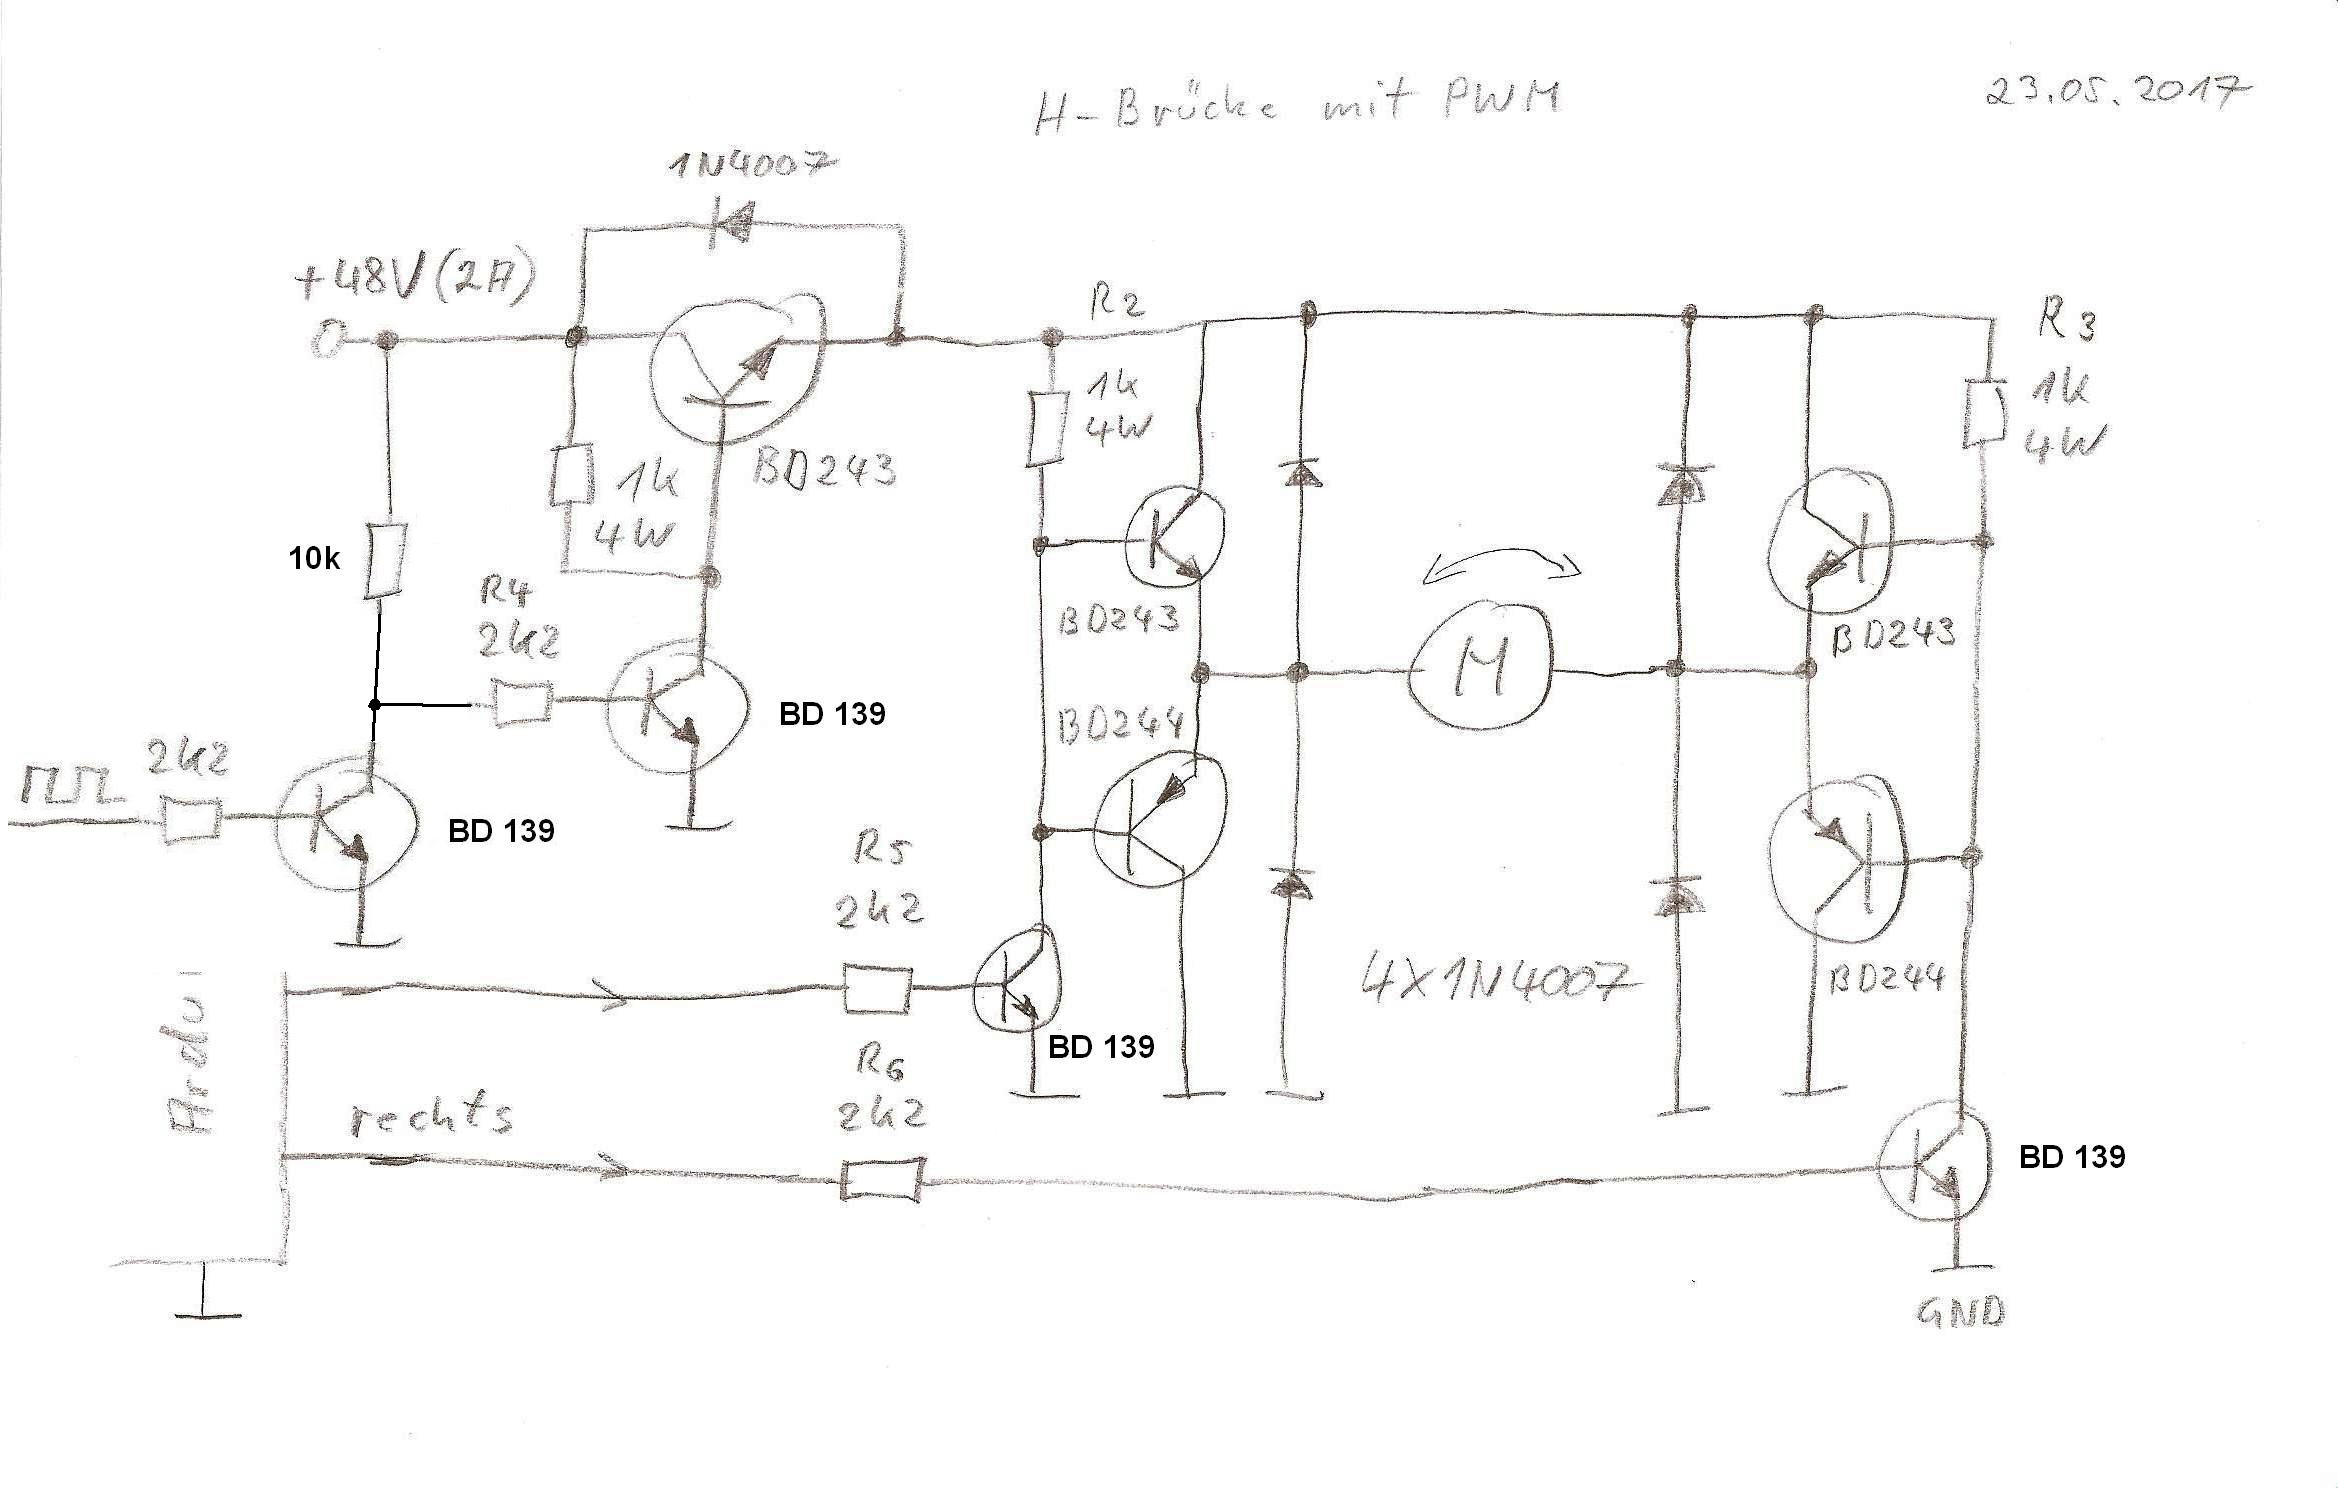 H-Brücke mit PWM
23.05.2017
1N4007
+48V(2A)
R2
1k
4W
R3
1k
4W
BD243
1k
4W
10k
R4
2k2
BD 139
2k2
BD 139
BD243
BD244
M
BD243
BD244
4X1N4007
R5
2k2
BD 139
R6
2k2
Ardui
rechts
BD 139
GND